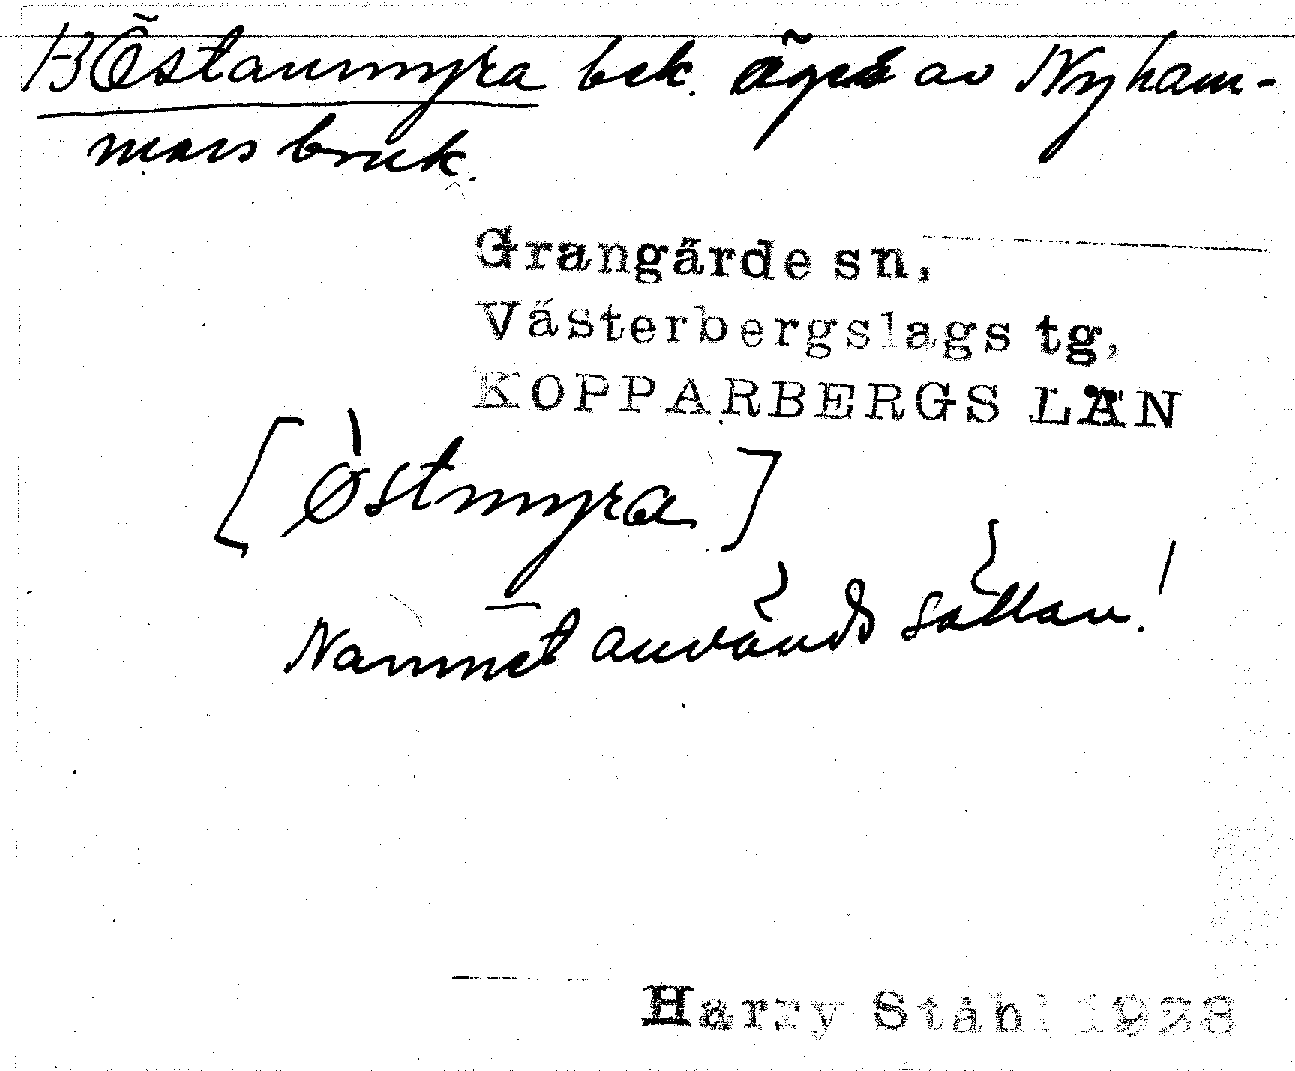 B Östanmyra bek. äges av Nyham-
mars bruk.
Grangärde sn,
Västerbergslags tg,
KOPPARBERGS LÄN
[Østmyra]
Namnet används sällan!
Harry Ståhl 1928